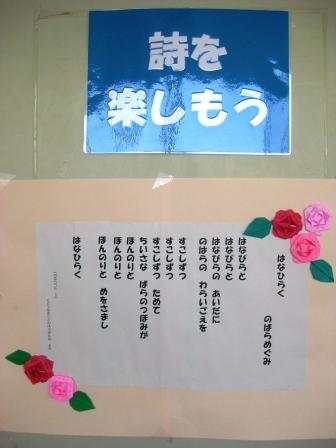 詩を
楽しもう
はなひらく
のばらめぐみ
はなびらと
はなびらと
はなびらの あいだに
のはらの わらいごえを
すこしずつ
すこしずつ
すこしずつ ためて
ちいさな ばらのつぼみが
ほんのりと
ほんのりと
ほんのりと めをさまし
はなひらく